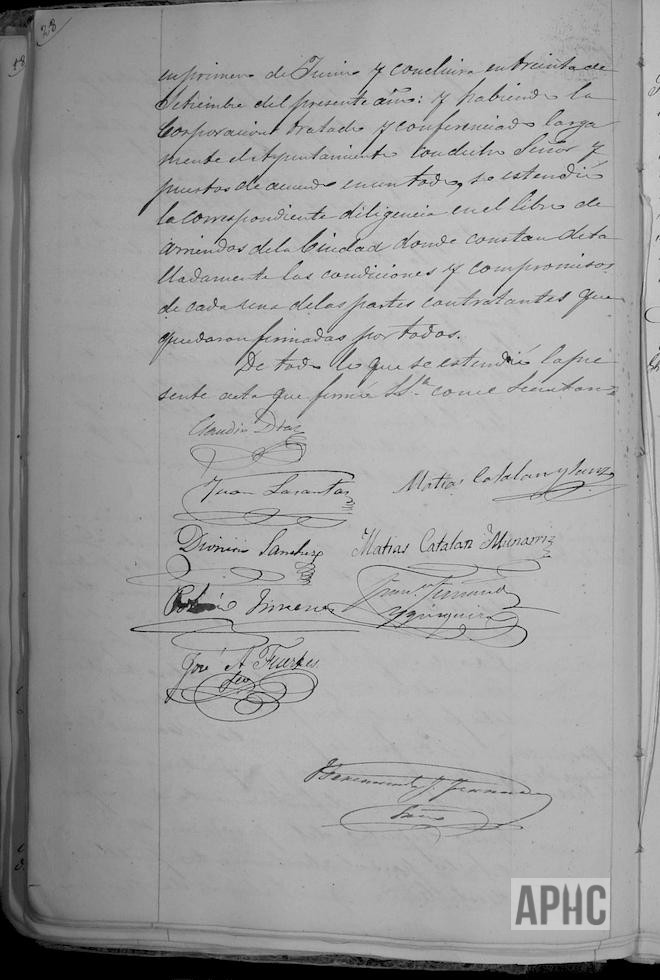 28
18
en primero de Junio y concluira en treinta de
Setiembre del presente año: y habiendo la
Corporacion tratado y conferenciado larga
mente el Ayuntamiento con dicho Señor y
puestos de acuerdo en un todo, se estendió
la correspondiente diligencia en el libro de
arriendos de la Ciudad donde constan deta
lladamente las condiciones y compromisos
de cada una de las partes contratantes que
quedaron firmadas por todos.
De todo lo que se estendió la pre
sente acta que firmó SSª con el Secretario
Claudio Diaz
Juan Lasantas
Matias Catalan y Sanz
Dionicio Sanchez
Matias Catalan Munarriz
Jimenez
Franco. Fernandez
José A. Fuertes
APHC